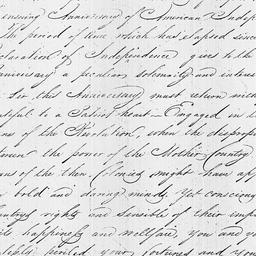 ensuing Anniversary of American Indep
The period of time which has elapsed since
claration of Independence gives to the
nniversary a peculiar solemnity and interes
for this Anniversary must return with
ateful to a Patriot heart — Engaged in th
ns of the Revolution, when the dispropo
tween the power of the Mother Country
ans of the then Colonies might have app
bold and daring minds. Yet conscious
untrys rights and sensible of their imp
happiness and wellfare, you and yo
your fortunes and your